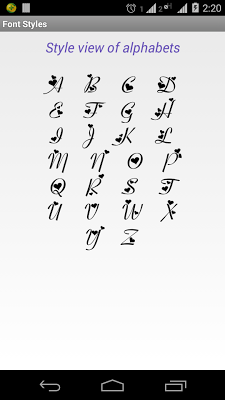 2:20
Font Styles
Style view of alphabets
A B C D
E F G H
I J K L
M N O P
Q R S T
U V W X
Y Z